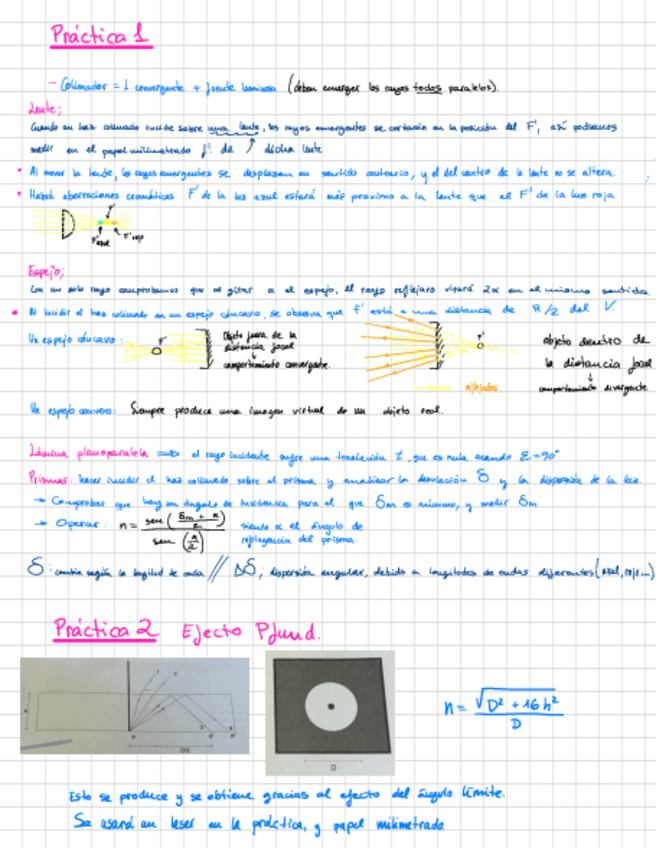 Práctica 1
- Colimador = L convergente + fuente luminosa (deben emerger los rayos todos paralelos).
Lente;
Cuando un haz colimado incide sobre una lente, los rayos emergentes se cortarán en la posición del F', así podremos
medir en el papel milimetrado f' de dicha lente
• Al mover la lente, los rayos emergentes se desplazan en sentido contrario, y el del centro de la lente no se altera.
• Habrá aberraciones cromáticas F' de la luz azul estará más proximo a la lente que el F' de la luz roja
F'
F'azul F'rojo
Espejo;
Con un solo rayo comprobamos que al girar α el espejo, el rayo reflejaro virará 2α en el mismo sentido
• Al incidir el haz colimado en un espejo cóncavo, se observa que F' está a una distancia de R/2 del V.
Un espejo cóncavo: Objeto fuera de la distancia focal ↓ comportamiento convergente.
F'
F'
reflejados
objeto dentro de la distancia focal ↓ comportamiento divergente
Un espejo convexo: Siempre produce una imagen virtual de un objeto real.
Lámina planoparalela ⇒ el rayo incidente sufre una translación t, que es nula cuando ε=90°
Prismas: hacer incidir el haz colimado sobre el prisma y analizar la desviación δ y la dispersión de la luz.
→ Comprobar que hay un ángulo de incidencia para el que δm es mínimo, y medir δm
→ Operar: n = sen((δm + α)/2) / sen(α/2) siendo α el ángulo de refringencia del prisma.
δ: cambia según la longitud de onda // Δδ, dispersión angular, debido a longitudes de ondas diferentes (azul, rojo...)
Práctica 2 Efecto Pfund.
D
n = √(D² + 16h²) / D
Esto se produce y se obtiene gracias al efecto del ángulo límite.
Se usará un laser en la práctica, y papel milimetrado